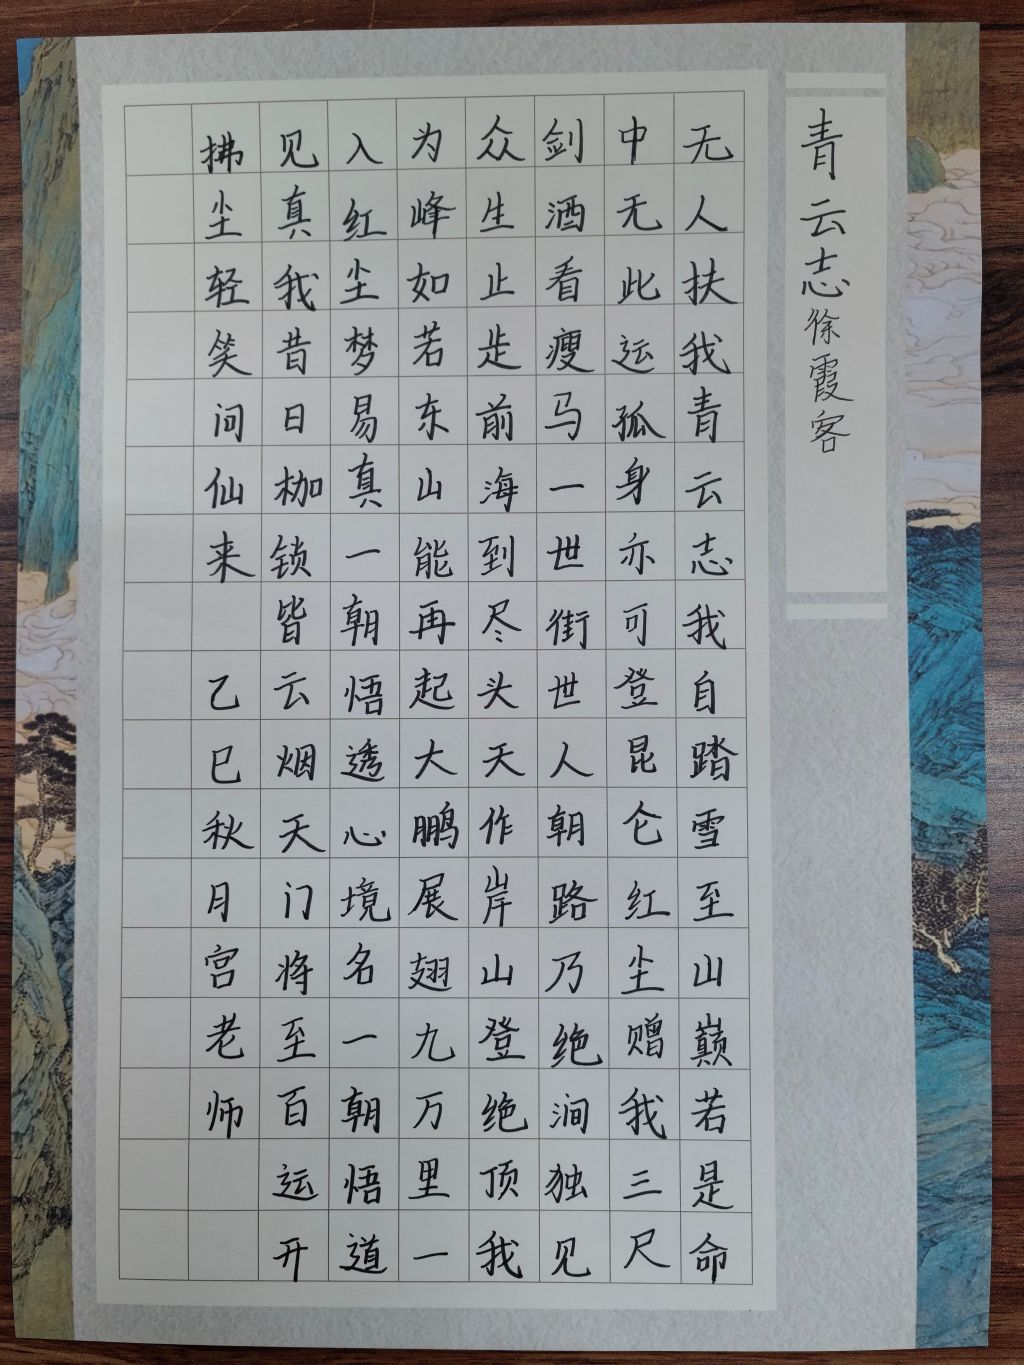 青云志徐霞客
无人扶我青云志我自踏雪至山巅若是命
中无此运孤身亦可登昆仑红尘赠我三尺
剑酒看瘦马一世街世人朝路乃绝涧独见
众生止步前海到尽头天作岸山登绝顶我
为峰如若东山能再起大鹏展翅九万里一
入红尘梦易真一朝悟透心境名一朝悟道
见真我昔日枷锁皆云烟天门将至百运开
拂尘轻笑问仙来 乙巳秋月宫老师